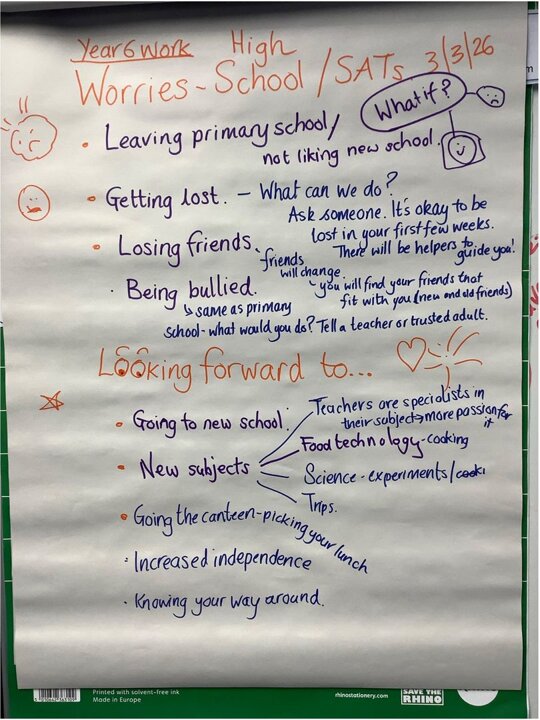 Year 6 Work High
Worries - School / SATs 3/3/26
What if?
• Leaving primary school/
not liking new school.
• Getting lost. - What can we do?
Ask someone. It's okay to be
lost in your first few weeks.
There will be helpers to
guide you!
• Losing friends.
friends
will change
you will find your friends that
fit with you (new and old friends)
• Being bullied.
↳ same as primary
school - what would you do? Tell a teacher or trusted adult.
Looking forward to...
• Going to new school
• New subjects
Teachers are specialists in
their subject → more passion for
it
Food technology - cooking
Science - experiments/cooki
Trips.
• Going the canteen - picking your lunch
• Increased independence
• Knowing your way around.
Printed with solvent-free ink
Made in Europe
rhinostationery.com
SAVE THE
RHINO